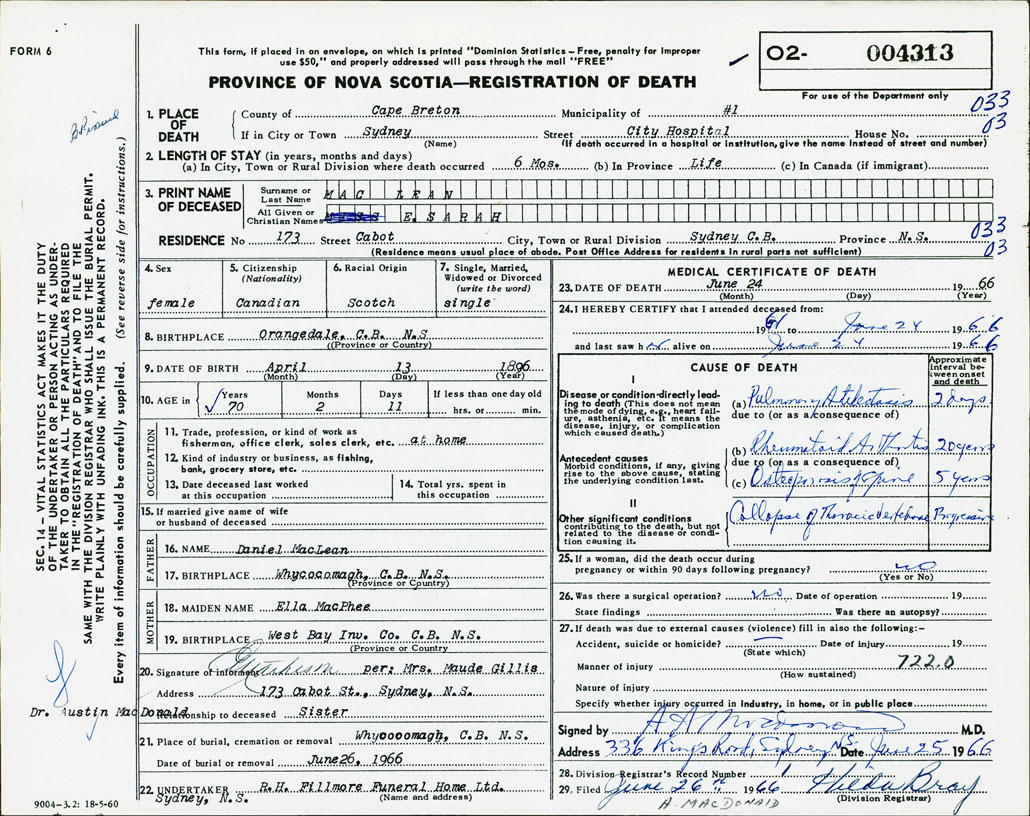 FORM 6
This form, if placed in an envelope, on which is printed "Dominion Statistics – Free, penalty for improper
use $50," and properly addressed will pass through the mail "FREE"
PROVINCE OF NOVA SCOTIA—REGISTRATION OF DEATH
O2- 004313
For use of the Department only
033
03
1. PLACE OF DEATH
County of Cape Breton Municipality of #1
If in City or Town Sydney Street City Hospital House No.
(Name) (If death occurred in a hospital or institution, give the name instead of street and number)
2. LENGTH OF STAY (in years, months and days)
(a) In City, Town or Rural Division where death occurred 6 Mos. (b) In Province Life (c) In Canada (if immigrant)
3. PRINT NAME OF DECEASED
Surname or Last Name MAC LEAN
All Given or Christian Names E. SARAH
033
03
RESIDENCE No 173 Street Cabot City, Town or Rural Division Sydney C.B. Province N.S.
(Residence means usual place of abode. Post Office Address for residents in rural parts not sufficient)
4. Sex
female
5. Citizenship
(Nationality)
Canadian
6. Racial Origin
Scotch
7. Single, Married, Widowed or Divorced
(write the word)
single
8. BIRTHPLACE Orangedale, C.B. N.S.
(Province or Country)
9. DATE OF BIRTH April 13 1896
(Month) (Day) (Year)
10. AGE in Years Months Days If less than one day old
70 2 11 hrs. or min.
OCCUPATION
11. Trade, profession, or kind of work as
fisherman, office clerk, sales clerk, etc. at home
12. Kind of industry or business, as fishing,
bank, grocery store, etc.
13. Date deceased last worked
at this occupation
14. Total yrs. spent in
this occupation
15. If married give name of wife
or husband of deceased
FATHER
16. NAME Daniel MacLean
17. BIRTHPLACE Whycocomagh, C.B. N.S.
(Province or Country)
MOTHER
18. MAIDEN NAME Ella MacPhee
19. BIRTHPLACE West Bay Inv. Co. C.B. N.S.
(Province or Country)
20. Signature of informant per: Mrs. Maude Gillis
Address 173 Cabot St., Sydney, N.S.
Dr. Austin MacDonald
Relationship to deceased Sister
21. Place of burial, cremation or removal Whycocomagh, C.B. N.S.
Date of burial or removal June26, 1966
22. UNDERTAKER R.H. Fillmore Funeral Home Ltd.
Sydney, N.S. (Name and address)
9004-3.2: 18-5-60
MEDICAL CERTIFICATE OF DEATH
23. DATE OF DEATH June 24 1966
(Month) (Day) (Year)
24. I HEREBY CERTIFY that I attended deceased from:
19 to June 24 1966
and last saw h alive on June 24 1966
CAUSE OF DEATH
Approximate interval between onset and death
I
Disease or condition directly leading to death (This does not mean the mode of dying, e.g., heart failure, asthenia, etc. It means the disease, injury, or complication which caused death.)
(a) Pulmonary Atelectasis 2 days
due to (or as a consequence of)
Antecedent causes
Morbid conditions, if any, giving rise to the above cause, stating the underlying condition last.
(b) Rheumatoid Arthritis 20 years
due to (or as a consequence of)
(c) Osteoporosis of Spine 5 years
II
Other significant conditions
contributing to the death, but not related to the disease or condition causing it.
Collapse of Thoracic Vertebrae Progressive
25. If a woman, did the death occur during
pregnancy or within 90 days following pregnancy? no
(Yes or No)
26. Was there a surgical operation? no Date of operation 19
State findings Was there an autopsy?
27. If death was due to external causes (violence) fill in also the following:–
Accident, suicide or homicide? Date of injury 19
(State which)
Manner of injury 722.0
(How sustained)
Nature of injury
Specify whether injury occurred in industry, in home, or in public place
Signed by M.D.
Address 336 Kings Road, Sydney NS. Date June 25 1966
28. Division Registrar's Record Number
29. Filed June 26th 1966 Hilda Bray
A. MACDONALD (Division Registrar)
SEC. 14 – VITAL STATISTICS ACT MAKES IT THE DUTY
OF THE UNDERTAKER OR PERSON ACTING AS UNDER-
TAKER TO OBTAIN ALL THE PARTICULARS REQUIRED
IN THE "REGISTRATION OF DEATH" AND TO FILE THE
SAME WITH THE DIVISION REGISTRAR WHO SHALL ISSUE THE BURIAL PERMIT.
WRITE PLAINLY WITH UNFADING INK. THIS IS A PERMANENT RECORD.
Every item of information should be carefully supplied. (See reverse side for instructions.)